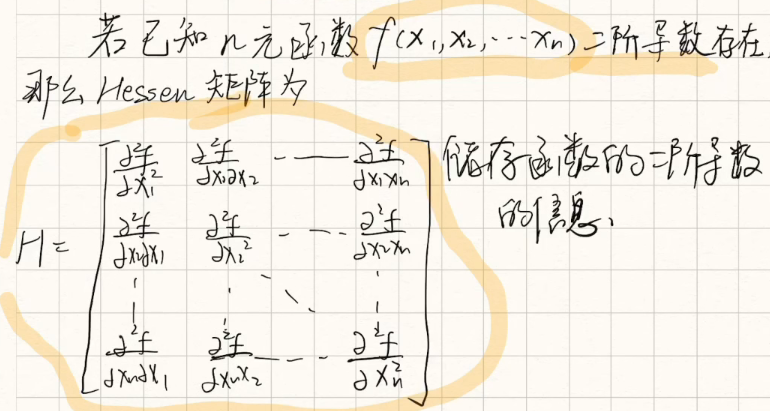 若已知n元函数f(x₁,x₂,…xₙ)二阶导数存在,
那么Hessen矩阵为
H = [ ∂²f/∂x₁² ∂²f/∂x₁∂x₂ ---- ∂²f/∂x₁xₙ
∂²f/∂x₂∂x₁ ∂²f/∂x₂² --- ∂²f/∂x₂xₙ
⋮ ⋮ ⋱ ⋮
∂²f/∂xₙ∂x₁ ∂²f/∂xₙx₂ --- ∂²f/∂xₙ² ]
储存函数的二阶导数
的信息.